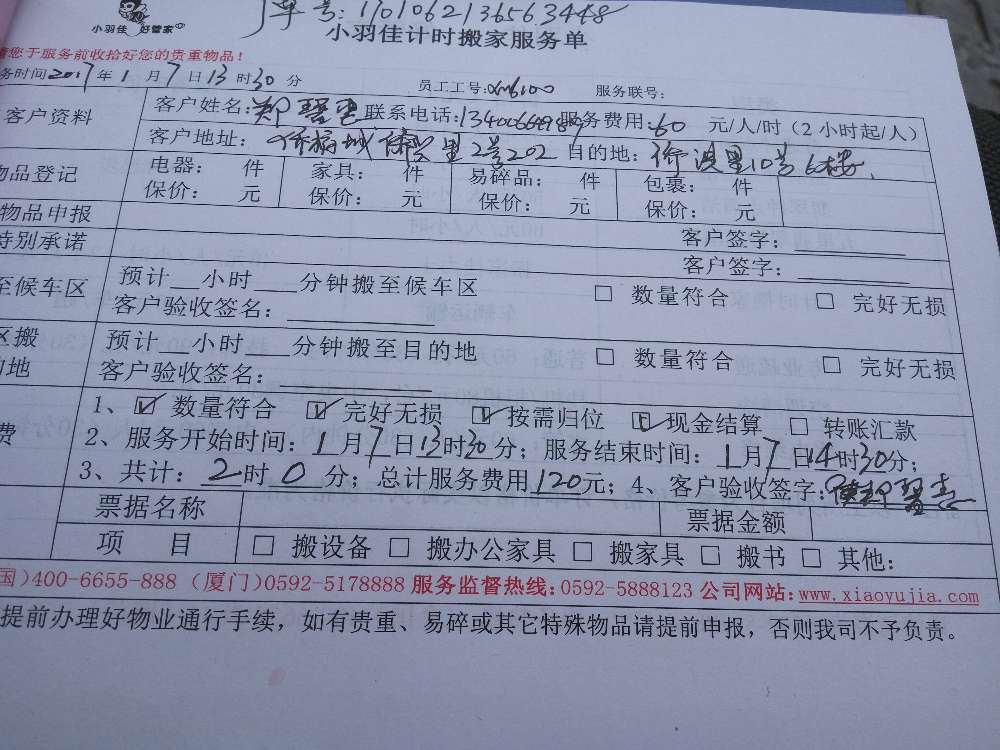 单号:170106213656 3448
小羽佳 好管家
小羽佳计时搬家服务单
请您于服务前收拾好您的贵重物品!
务时间2017年1月7日13时30分 员工工号: 服务联号:
客户资料 客户姓名:郑 联系电话: 服务费用:60 元/人/时(2小时起/人)
客户地址: 里2号202 目的地: 里10号6楼
物品登记 电器: 件 家具: 件 易碎品: 件 包裹: 件
保价: 元 保价: 元 保价: 元 保价: 元
物品申报 客户签字:
特别承诺 客户签字:
至候车区 预计__小时___分钟搬至候车区 □ 数量符合 □ 完好无损
客户验收签名:
区搬 预计__小时___分钟搬至目的地 □ 数量符合 □ 完好无损
的地 客户验收签名:
1、☑ 数量符合 ☑ 完好无损 ☑ 按需归位 ☑ 现金结算 □ 转账汇款
费 2、服务开始时间:1月7日13时30分;服务结束时间:1月7日14时30分;
3、共计:2时0分;总计服务费用120元;4、客户验收签字:
票据名称 票据金额
项 目 □ 搬设备 □ 搬办公家具 □ 搬家具 □ 搬书 □ 其他:
国)400-6655-888 (厦门)0592-5178888 服务监督热线:0592-5888123 公司网站:www.xiaoyujia.com
提前办理好物业通行手续,如有贵重、易碎或其它特殊物品请提前申报,否则我司不予负责。